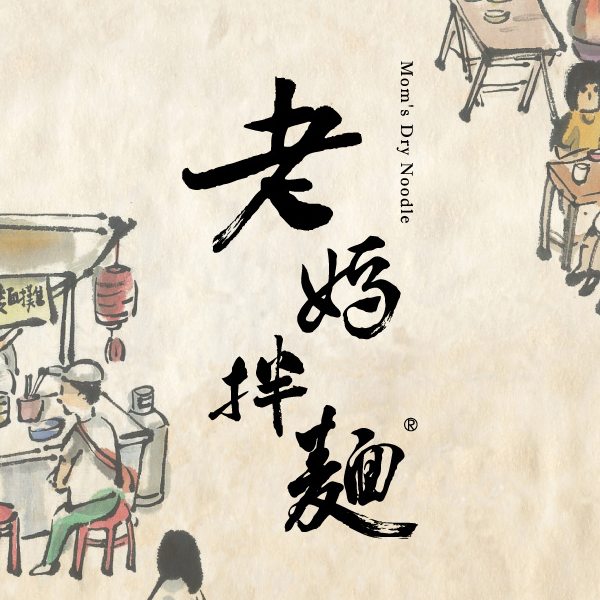 Mom's Dry Noodle
老媽拌麵
®
麵攤